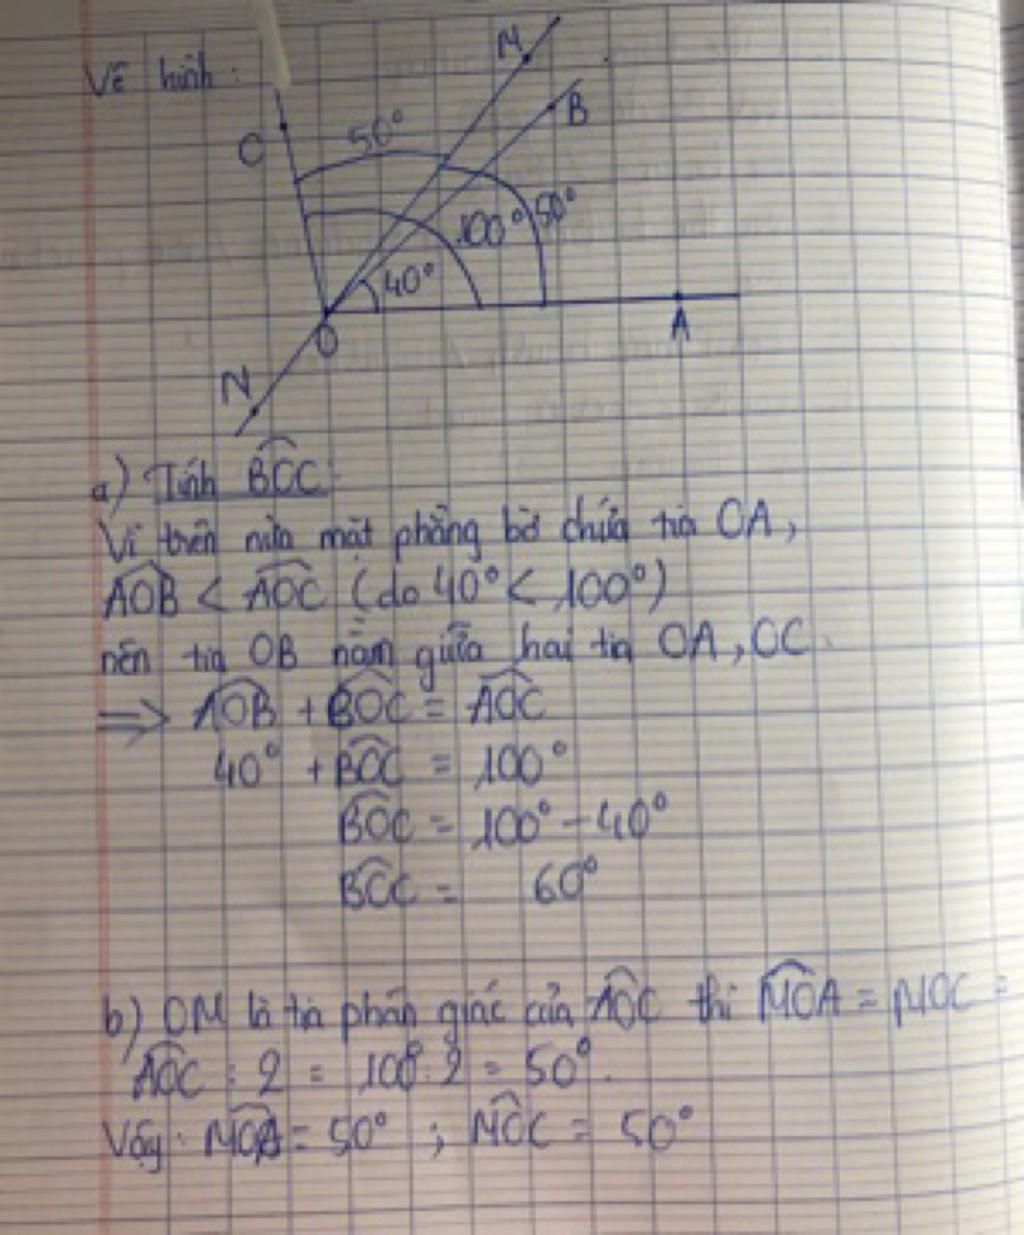 Vẽ hình:
M
B
C
50°
100°
50°
40°
O
A
N
a) Tính BOC
Vì trên nửa mặt phẳng bờ chứa tia OA,
AOB < AOC (do 40° < 100°)
nên tia OB nằm giữa hai tia OA, OC.
=> AOB + BOC = AOC
40° + BOC = 100°
BOC = 100° - 40°
BOC = 60°
b) OM là tia phân giác của AOC thì MOA = MOC =
AOC : 2 = 100° : 2 = 50°.
Vậy: MOA = 50° ; MOC = 50°